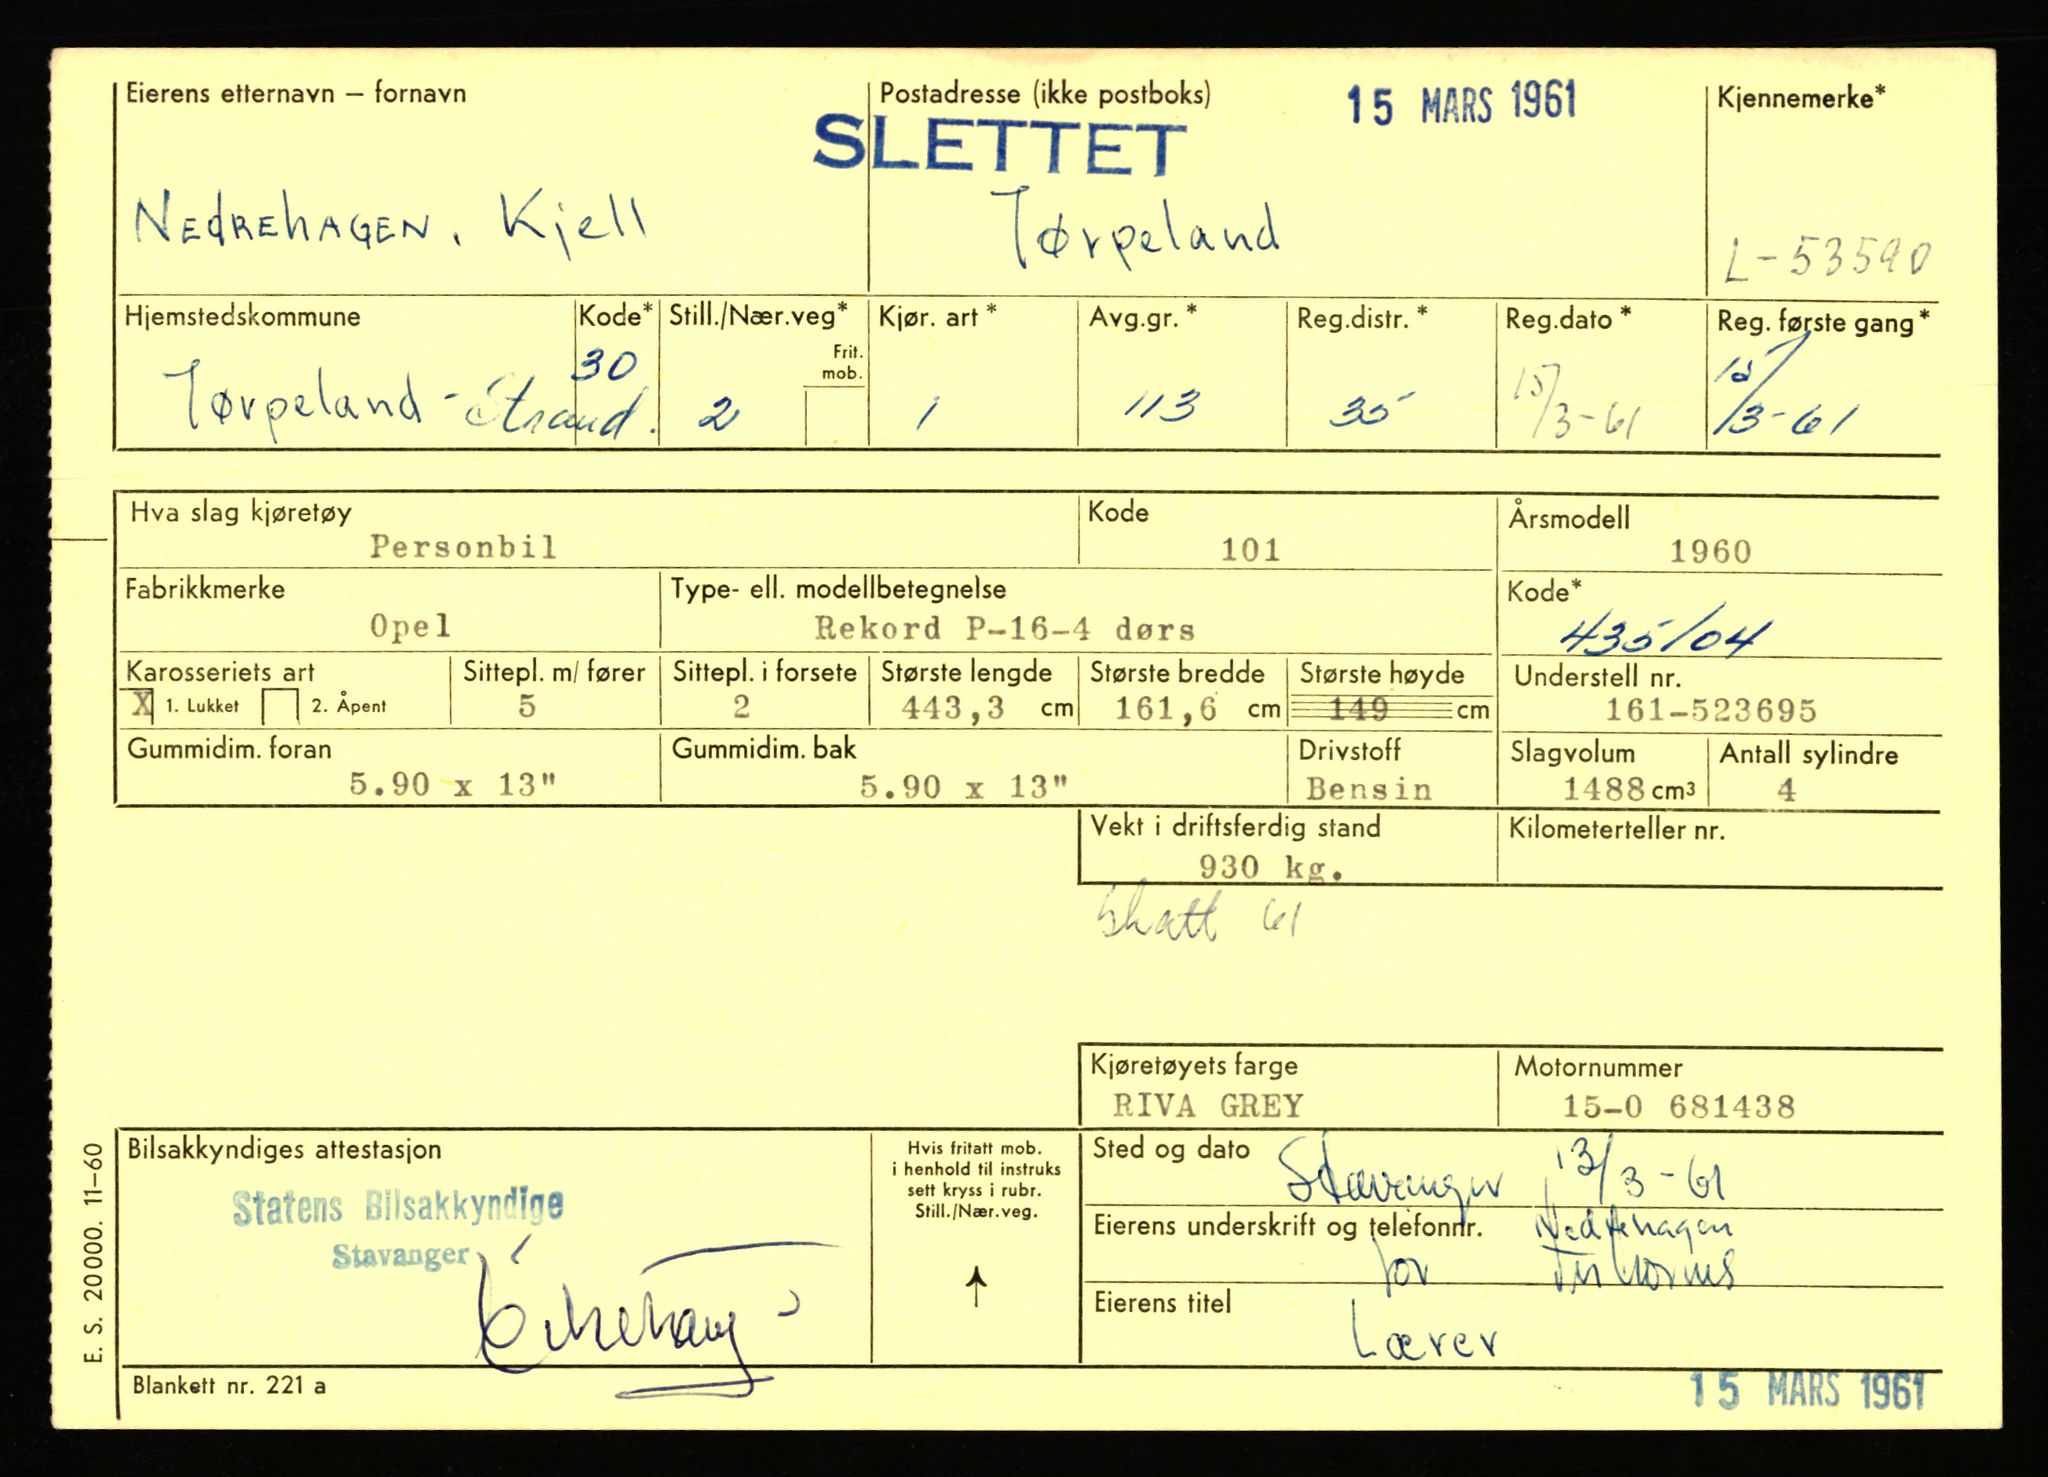 Eierens etternavn – fornavn Postadresse (ikke postboks) 15 MARS 1961 Kjennemerke*
SLETTET
NEdREhAGEN, Kjell Jørpeland L-53590
Hjemstedskommune Kode* Still./Nær.veg* Kjør. art * Avg.gr. * Reg.distr. * Reg.dato * Reg. første gang *
Frit. mob.
Jørpeland - Strand. 30 2 1 113 35 15/3-61 15/3-61
Hva slag kjøretøy Kode Årsmodell
Personbil 101 1960
Fabrikkmerke Type- ell. modellbetegnelse Kode*
Opel Rekord P-16-4 dørs 435/04
Karosseriets art Sittepl. m/ fører Sittepl. i forsete Største lengde Største bredde Største høyde Understell nr.
X 1. Lukket 2. Åpent 5 2 443,3 cm 161,6 cm 149 cm 161-523695
Gummidim. foran Gummidim. bak Drivstoff Slagvolum Antall sylindre
5.90 x 13" 5.90 x 13" Bensin 1488 cm³ 4
Vekt i driftsferdig stand Kilometerteller nr.
930 kg.
Skatt 61
Kjøretøyets farge Motornummer
RIVA GREY 15-0 681438
Bilsakkyndiges attestasjon
Statens Bilsakkyndige
Stavanger
Hvis fritatt mob.
i henhold til instruks
sett kryss i rubr.
Still./Nær.veg.
↑
Sted og dato Stavanger 13/3-61
Eierens underskrift og telefonnr. Nedrehagen
for
Eierens titel
Lærer
Blankett nr. 221 a
15 MARS 1961
E. S. 20000. 11–60